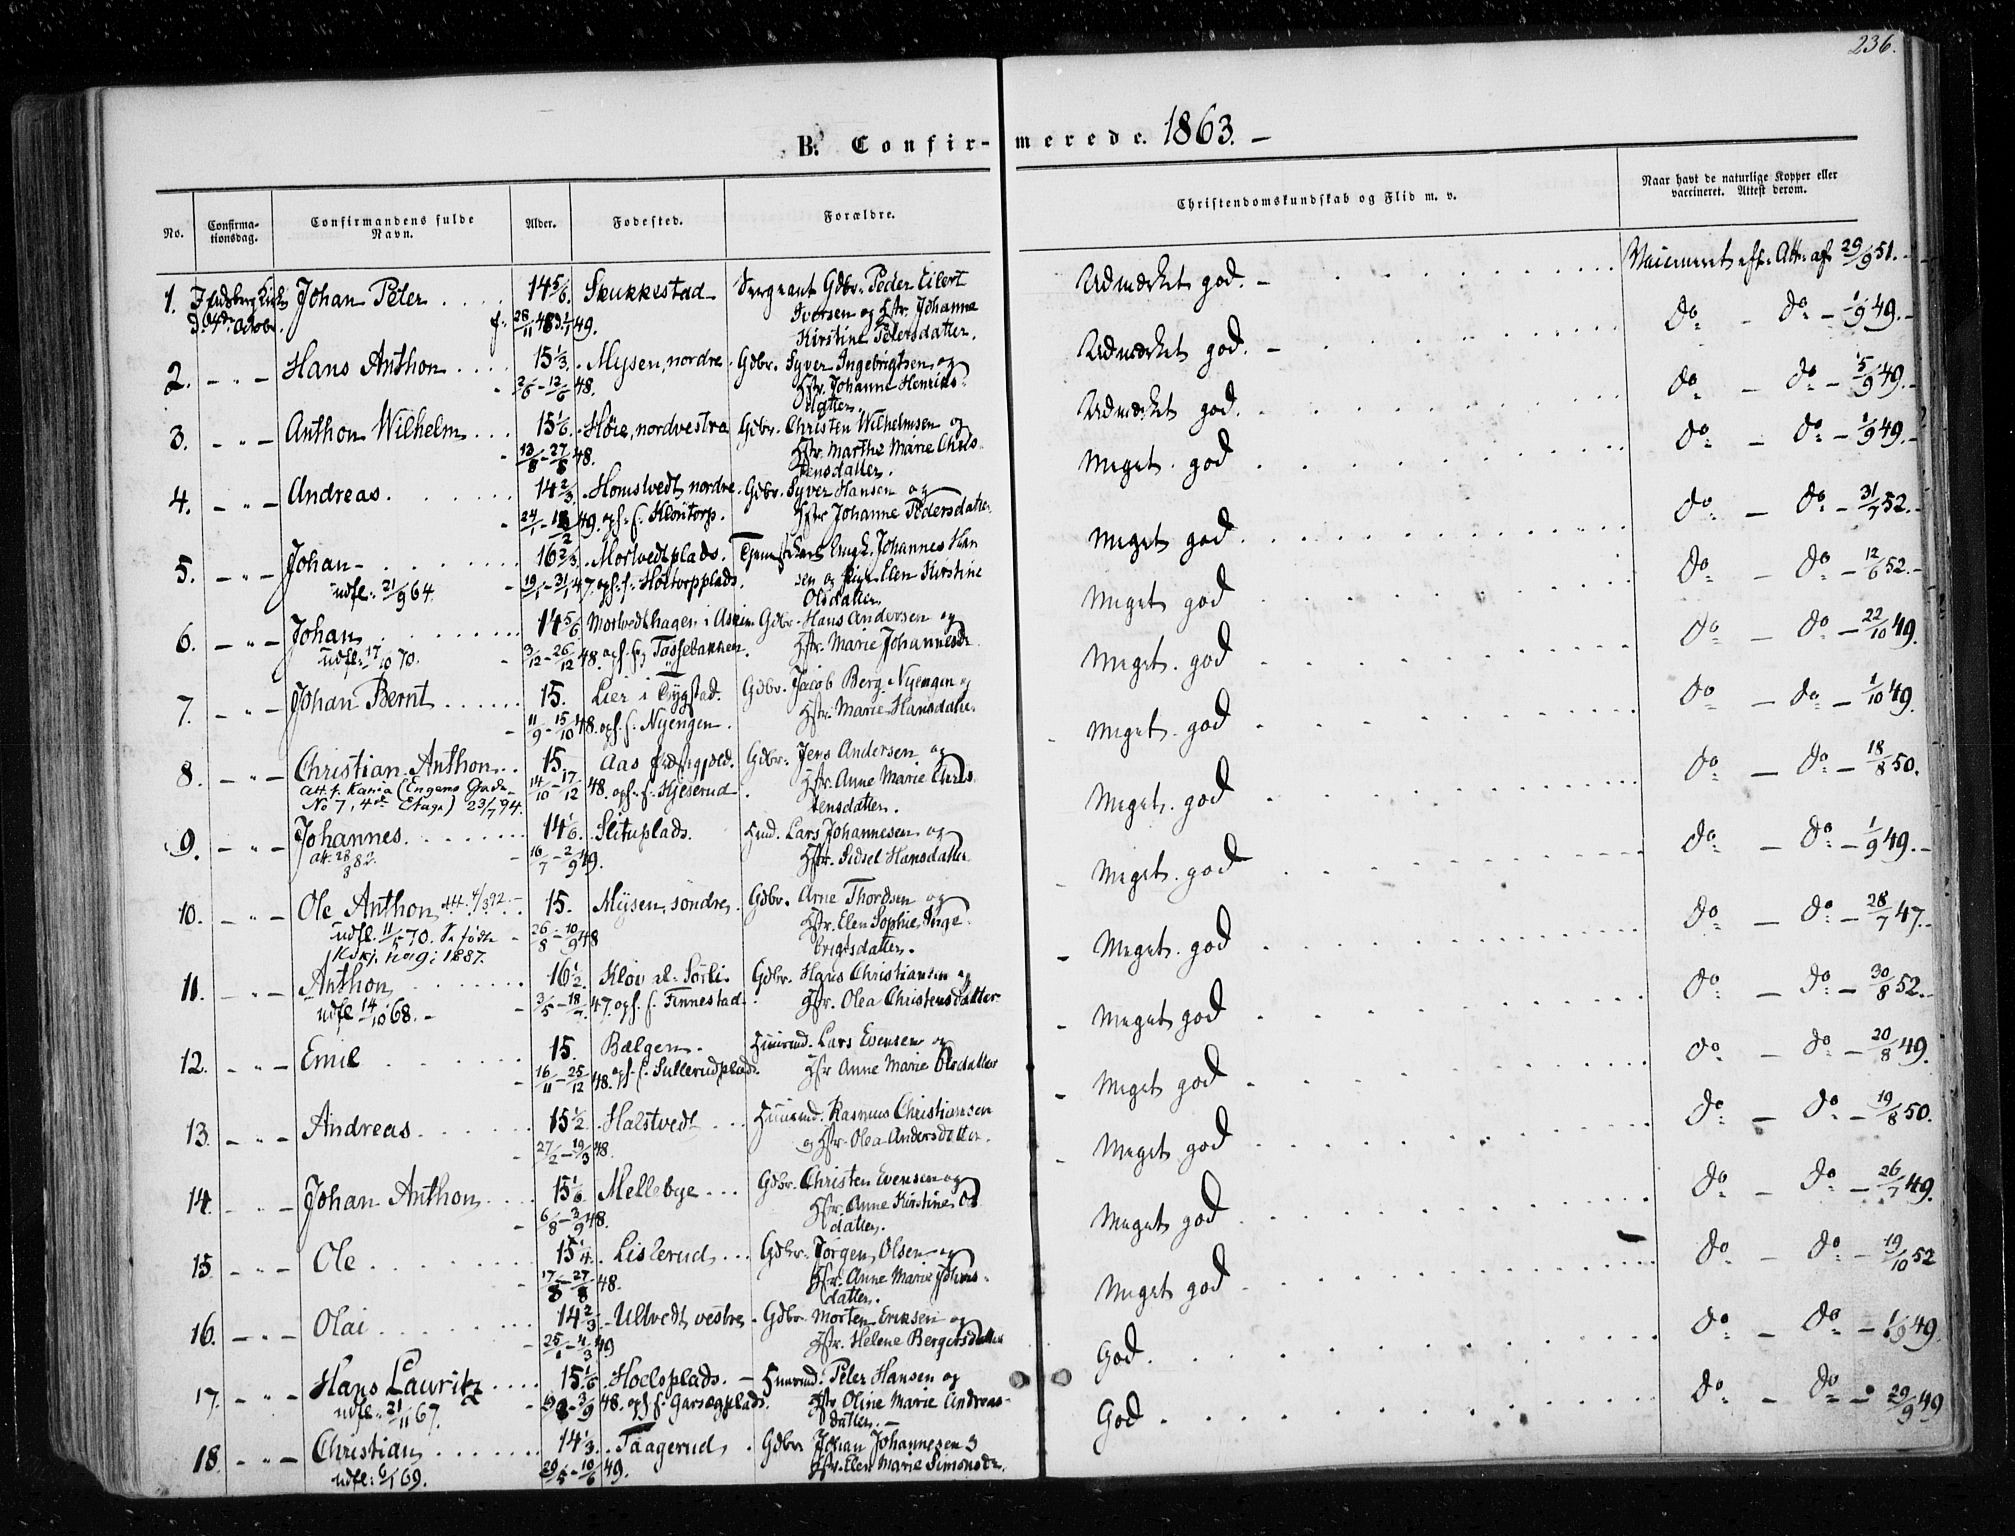 236.
B. Confirmerede. 1863. –
No.
Confirmationsdag.
Confirmandens fulde Navn.
Alder.
Fødested.
Forældre.
Christendomskundskab og Flid m. v.
Naar havt de naturlige Kopper eller vaccineret. Attest derom.
1. Johan Peter 14 5/6. Skukkestad Sergeant Gdbr. Peder Eilert Udmærket god. – Vaccineret Att. af 29/9 51.
d. 4de Octobr. f. 28/11 48 49. Iversen og Hstr. Johanne
Kirstine Petersdatter.
2. – " – Hans Anthon 15 1/3. Mysen, nordre. Gdbr. Syver Ingebrigtsen og Udmærket god. – do – do – 1/9 49. –
2/6 – 12/6 48. Hstr. Johanne Henriks-
datter.
3. – " – Anthon Wilhelm 15 1/6. Høie, nordvestra Gdbr. Christen Wilhelmsen og Udmærket god. do – do – 5/9 49. –
13/8 – 27/8 48. Hstr. Marthe Marie Chris-
tensdatter.
4. – " – Andreas. 14 2/3. Homstvedt nordre. Gdbr. Syver Hansen og Meget god do – do – 1/9 49. –
24/1 – 18/2 49. opf. f. Klontorp. Hstr Johanne Pedersdatter
5. – " – Johan – 16 2/3. Mortvedtplads. Johannes Han Meget god do – do – 31/7 52. –
udfl. 21/9 64. 19/1 – 31/1 47. opf. f. Holtorpplads. sen og Pige Elen Kirstine
Olsdatter
6. – " – Johan 14 5/6. Mortvedthagen i Askim Gdbr. Hans Andersen og Meget god do – do – 12/6 52. –
udfl. 17/10 70. 3/12 – 26/12 48. opf. Tossebakken. Hstr. Marie Johannesdr
7. – " – Johan Bernt 15. Lier i Tygstad. Gdbr. Jacob Berg Nyengen og Meget god do – do – 22/10 49.
11/9 – 15/10 48. opf. f. Nyengen. Hstr. Marie Hansdatter.
8. – " – Christian Anthon 15. Aas Gdbr. Jens Andersen og Meget god do – do – 1/10 49.
att. t. Kania (Engens Gade 14/10 – 17/12 48. opf. f. Kjeserud Hstr. Anne Marie Chris
No 7, 4de Etage) 23/7 94. tensdatter.
9. – " – Johannes. 14 1/6. Slituplads. Husmd. Lars Johannesen og Meget god do – do – 18/8 50.
att. 28/3 82. 16/7 – 2/9 49. Hstr. Sidsel Hansdatter
10. – " – Ole Anthon att. 4/3 92. 15. Mysen, søndre. Gdbr. Arne Thordsen og Meget god do – do – 1/9 49. –
udfl. 11/5 70. Se fødte 26/8 – 10/9 48 Hstr. Elen Sophie Inge-
1887. brigtsdatter.
11. – " – Anthon 16 1/2. Kløv Sørli. Gdbr. Hans Christiansen og Meget god do – do – 28/7 47. –
udfl 14/10 68. – 3/5 – 18/7 47. opf. f. Finnestad. Hstr. Olea Christensdatter
12. – " – Emil 15. Bælgen. Huusmd. Lars Evensen og Meget god do – do – 30/8 52. –
16/11 – 25/12 48. opf. f. Sullerudplads. Hstr Anne Marie Olsdatter
13. – " – Andreas 15 1/2. Halstvedt Huusmd. Rasmus Christiansen Meget god do – do – 20/8 49.
27/2 – 19/3 48. og Hstr. Olea Andersdatter.
14. – " – Johan Anthon 15 1/6. Mellebye Gdbr. Christen Evensen og Meget god do – do – 19/8 50.
6/8 – 3/9 48. Hstr. Anne Kirstine Ols
datter.
15. – " – Ole 15 1/4. Lislerud Gdbr. Jørgen Olsen og Meget god do – do – 26/7 49.
17/8 – 27/8 48. Hstr. Anne Marie
datter.
16. – " – Olai 14 2/3. Ultvedt vestre. Gdbr. Morten Eriksen og Meget god do – do – 19/10 52
25/1 – 4/3 49 Hstr. Helene Bergersdatter
17. – " – Hans Lauritz 15 1/6. Hoelsplads. – Huusmd. Peter Hansen og God. do – do – 1/9 49.
udfl. 21/11 67. 3/9 48. opf. f. Garsegplads. Hstr Oline Marie Andreas-
datter. –
18. – " – Christian 14 1/3. Taagerud Gdbr. Johan Johannesen og God do – do – 29/9 49
udfl. 6/1 69. 29/5 – 10/6 49. Hstr. Elen Marie Simonsdr.